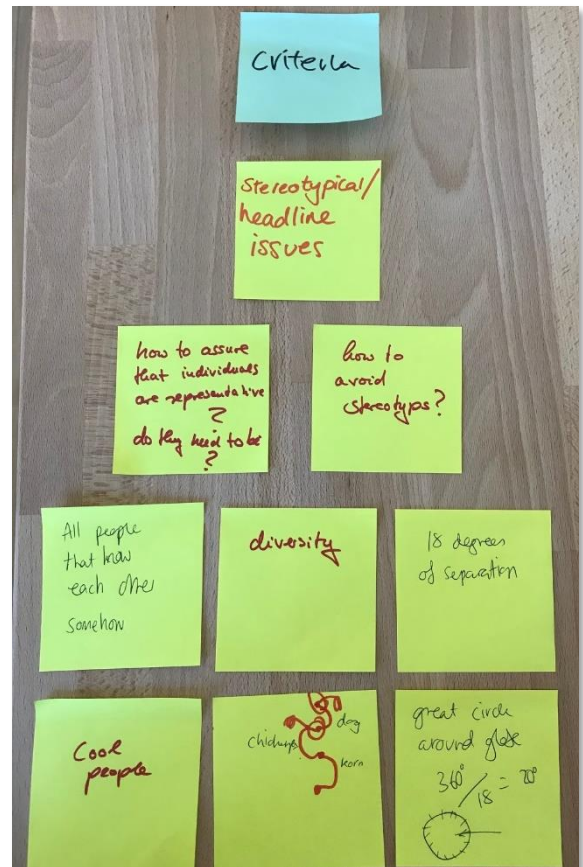 Criteria
stereotypical/
headline
issues
how to assure
that individuals
are representative
?
do they need to be
?
how to
avoid
stereotyps?
All people
that know
each other
somehow
diversity
18 degrees
of separation
Cool
people
dog
korn
great circle
around globe
360°/18 = 20°